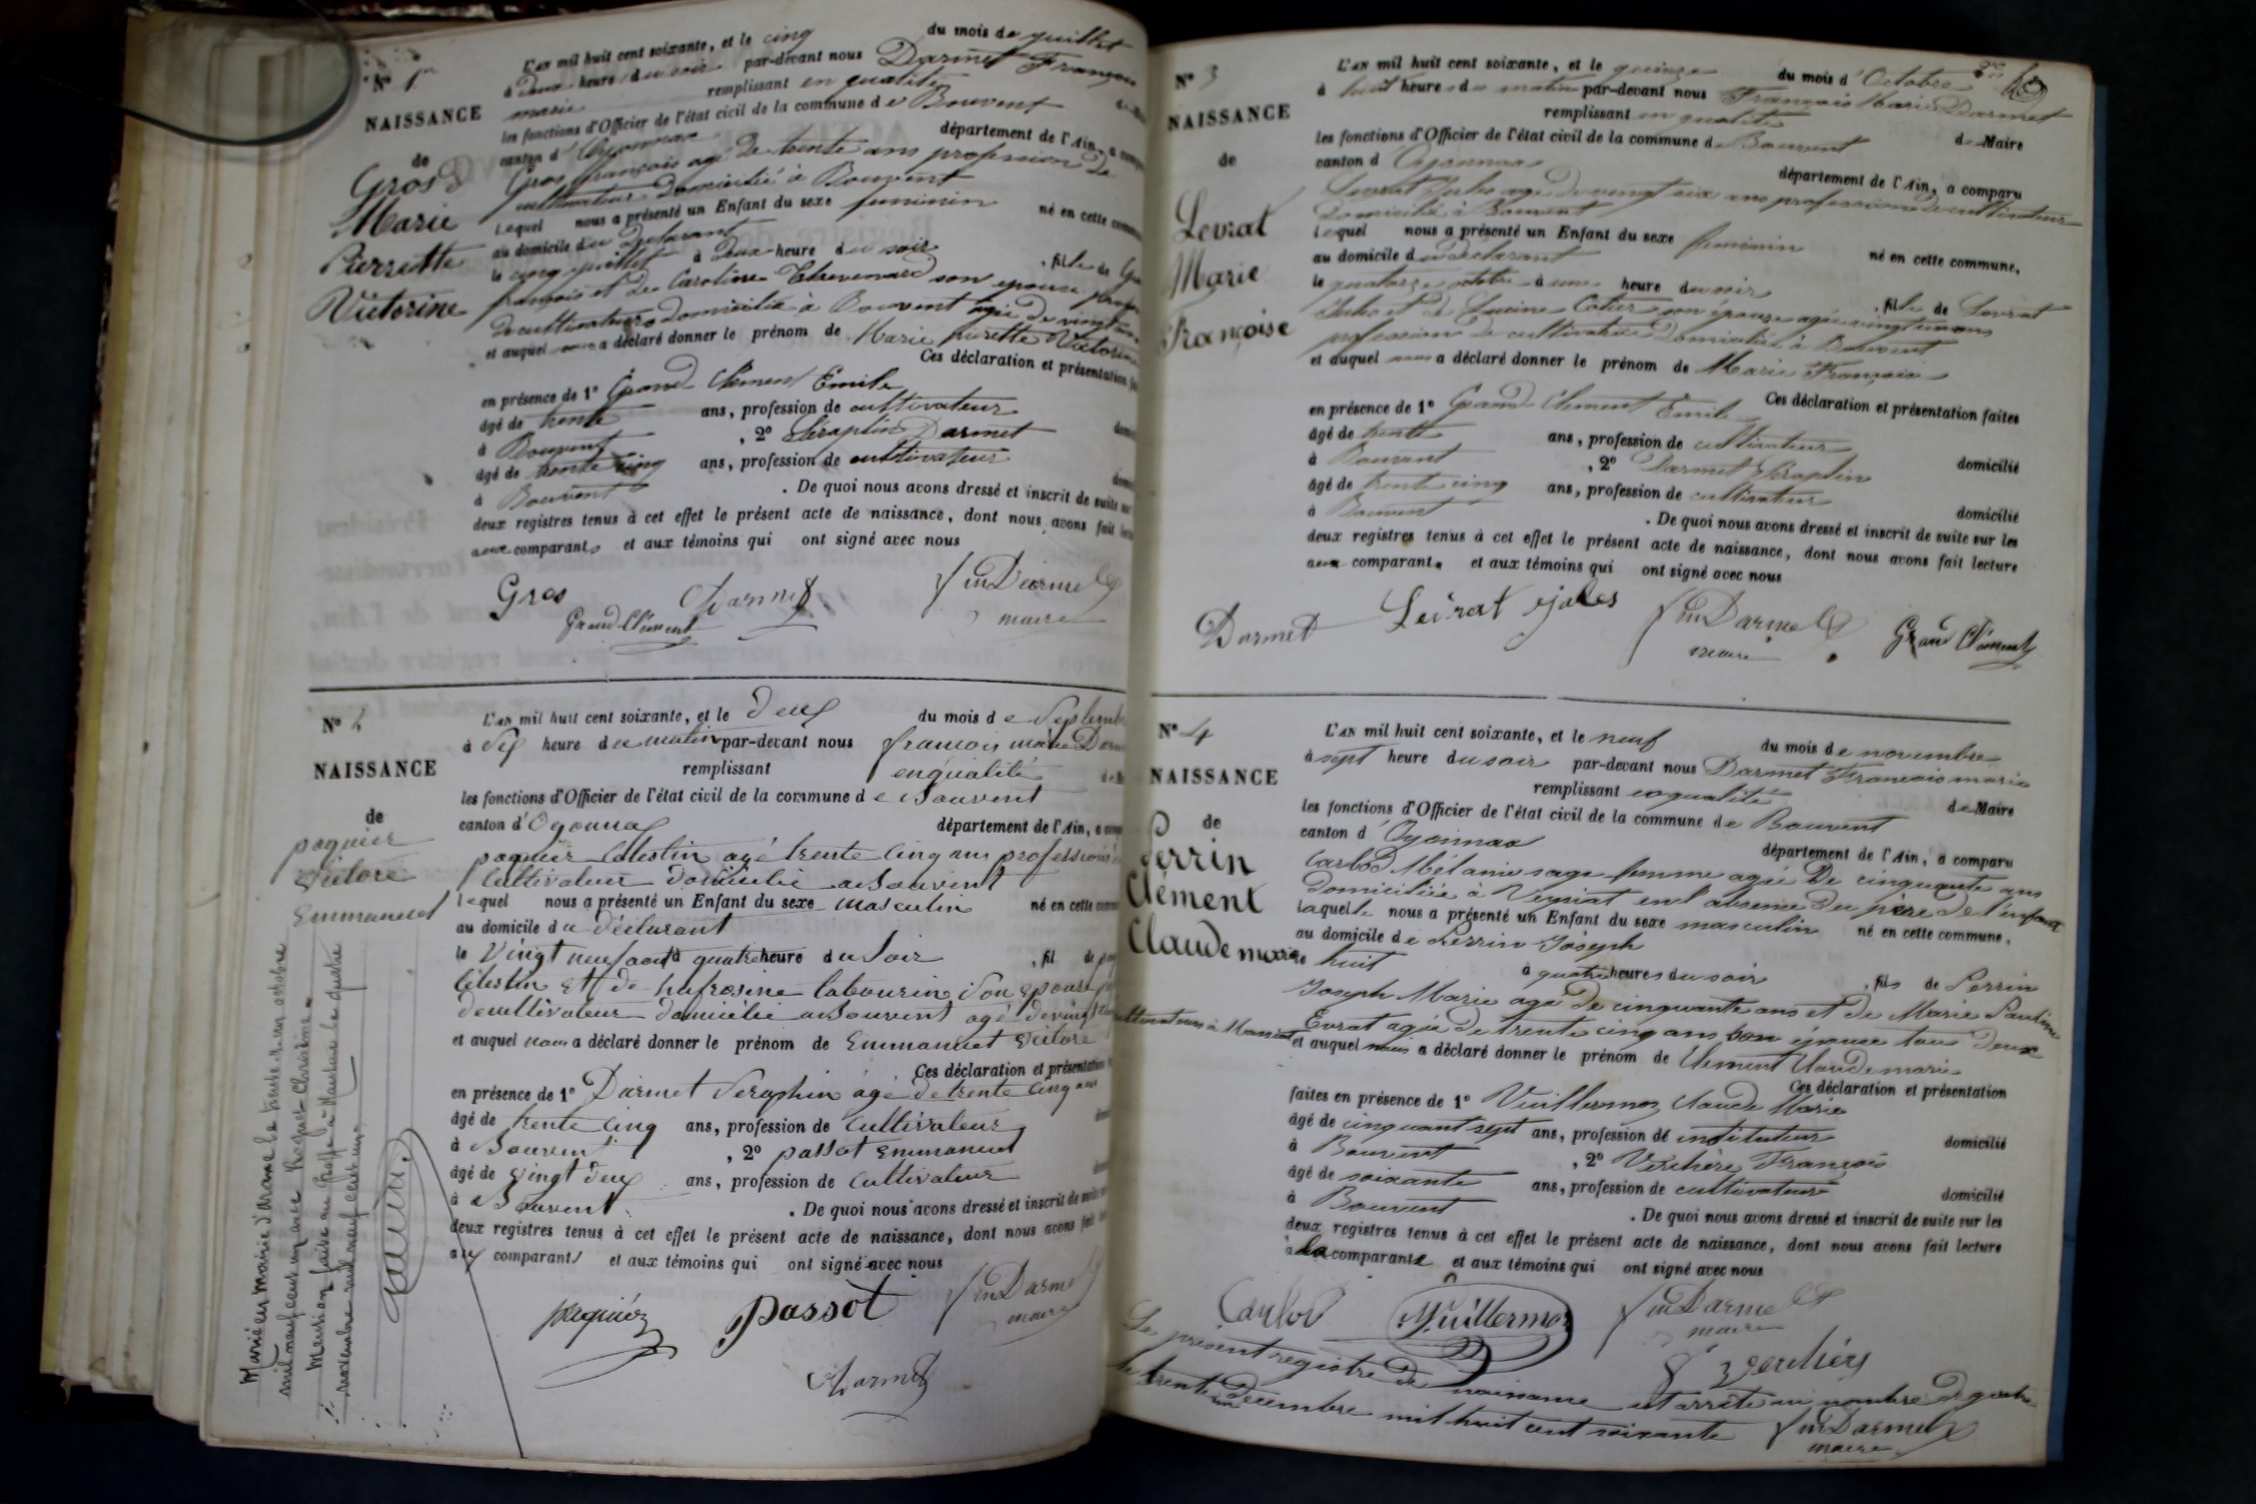 Nº 1er
NAISSANCE
de
Gros
Marie
Pierrette
Victorine
L'AN mil huit cent soixante, et le cinq du mois de juillet
à deux heure du soir par-devant nous Darmet François
marie remplissant en qualité
les fonctions d'Officier de l'état civil de la commune de Bouvent
canton d'Oyonnax département de l'Ain, a comparu
Gros françois agé de trente ans profession de
cultivateur domicilié à Bouvent
lequel nous a présenté un Enfant du sexe feminin né en cette commune
au domicile du declarant
le cinq juillet à deux heure du soir, fille de Gros
françois et de Caroline son epouse
de cultivateurs domiciliée à Bouvent agée de vingt
et auquel a déclaré donner le prénom de Marie pierette Victorine
Ces déclaration et présentation
en présence de 1º Grand Clément Emile
âgé de trente ans, profession de cultivateur
à Bouvent, 2º Séraphin Darmet
âgé de trente cinq ans, profession de cultivateur
à Bouvent. De quoi nous avons dressé et inscrit de suite sur
deux registres tenus à cet effet le présent acte de naissance, dont nous avons fait
aux comparants et aux témoins qui ont signé avec nous
Gros Darmet fm Darmet
Grand Clément maire
Nº 2
NAISSANCE
de
paquier
Victore
Emmanuel
L'AN mil huit cent soixante, et le deux du mois de Septembre
à Six heure du matin par-devant nous francois marie Darmet
remplissant en qualité
les fonctions d'Officier de l'état civil de la commune de Bouvent
canton d'Oyonnax département de l'Ain, a
paquier Celestin agé trente cinq ans profession
Cultivateur domicilié a Bouvent
lequel nous a présenté un Enfant du sexe masculin né en cette
au domicile du déclarant
le Vingt neuf aout à quatre heure du Soir, fil de
Célestin Et de labourin son epouse
de cultivateur domicilée a Bouvent agé de vingt
et auquel nous a déclaré donner le prénom de Emmanuel Victore
Ces déclaration et présentation
en présence de 1º Darmet Seraphin agé de trente cinq ans
âgé de trente cinq ans, profession de Cultivateur
à Bouvent, 2º passot Emmanuel
âgé de Vingt deux ans, profession de Cultivateur
à Bouvent. De quoi nous avons dressé et inscrit de suite
deux registres tenus à cet effet le présent acte de naissance, dont nous avons fait
aux comparants et aux témoins qui ont signé avec nous
paquier Passot fm Darmet
maire
Darmet
Marié en mairie d'Arane le trente-un octobre
mil neuf cent un avec Roguet Christine
Mention faite au Greffe à Nantua le quatre
novembre mil neuf cent un.
Nº 3
NAISSANCE
de
Levrat
Marie
Françoise
L'AN mil huit cent soixante, et le quinze du mois d'Octobre
à huit heures du matin par-devant nous François Marie Darmet
remplissant en qualité de Maire
les fonctions d'Officier de l'état civil de la commune de Bouvent
canton d Oyonnax département de l'Ain, a comparu
Levrat Jules agé de vingt six ans profession de cultivateur
domicilié à Bouvent
lequel nous a présenté un Enfant du sexe feminin né en cette commune,
au domicile du déclarant
le quatorze octobre à une heure du soir, fille de Levrat
Jules et de Lucine son épouse agée vingt
profession de cultivatrice domiciliée à Bouvent
et auquel nous a déclaré donner le prénom de Marie Françoise
Ces déclaration et présentation faites
en présence de 1º Grand Clément Emile
âgé de trente ans, profession de cultivateur domicilié
à Bouvent, 2º Darmet Séraphin
âgé de trente cinq ans, profession de cultivateur domicilié
à Bouvent. De quoi nous avons dressé et inscrit de suite sur les
deux registres tenus à cet effet le présent acte de naissance, dont nous avons fait lecture
aux comparants et aux témoins qui ont signé avec nous
Darmet Levrat jules fm Darmet Grand Clément
maire
Nº 4
NAISSANCE
de
Perrin
Clément
Claude marie
L'AN mil huit cent soixante, et le neuf du mois de novembre
à sept heure du soir par-devant nous Darmet François marie
remplissant en qualité de Maire
les fonctions d'Officier de l'état civil de la commune de Bouvent
canton d'Oyonnax département de l'Ain, a comparu
Carbod Mélanie sage femme agée De cinquante ans
domiciliée à Veyziat en l'absence du père de l'enfant
laquelle nous a présenté un Enfant du sexe masculin né en cette commune,
au domicile de Perrin Joseph
le huit à quatre heures du soir, fils de Perrin
Joseph Marie agé de cinquante ans et de Marie Pauline
Evrat agée de trente cinq ans son épouse tous deux
cultivateurs à
et auquel nous a déclaré donner le prénom de Clément Claude marie
Ces déclaration et présentation
faites en présence de 1º Vuillermoz Claude Marie
âgé de cinquant sept ans, profession de instituteur domicilié
à Bouvent, 2º Verchère François
âgé de soixante ans, profession de cultivateur domicilié
à Bouvent. De quoi nous avons dressé et inscrit de suite sur les
deux registres tenus à cet effet le présent acte de naissance, dont nous avons fait lecture
à la comparante et aux témoins qui ont signé avec nous
Carbod Vuillermoz fm Darmet
maire
f verchère
Le présent registre de naissance est arrêté au nombre de quatre
le trente un decembre mil huit cent soixante fm Darmet
maire